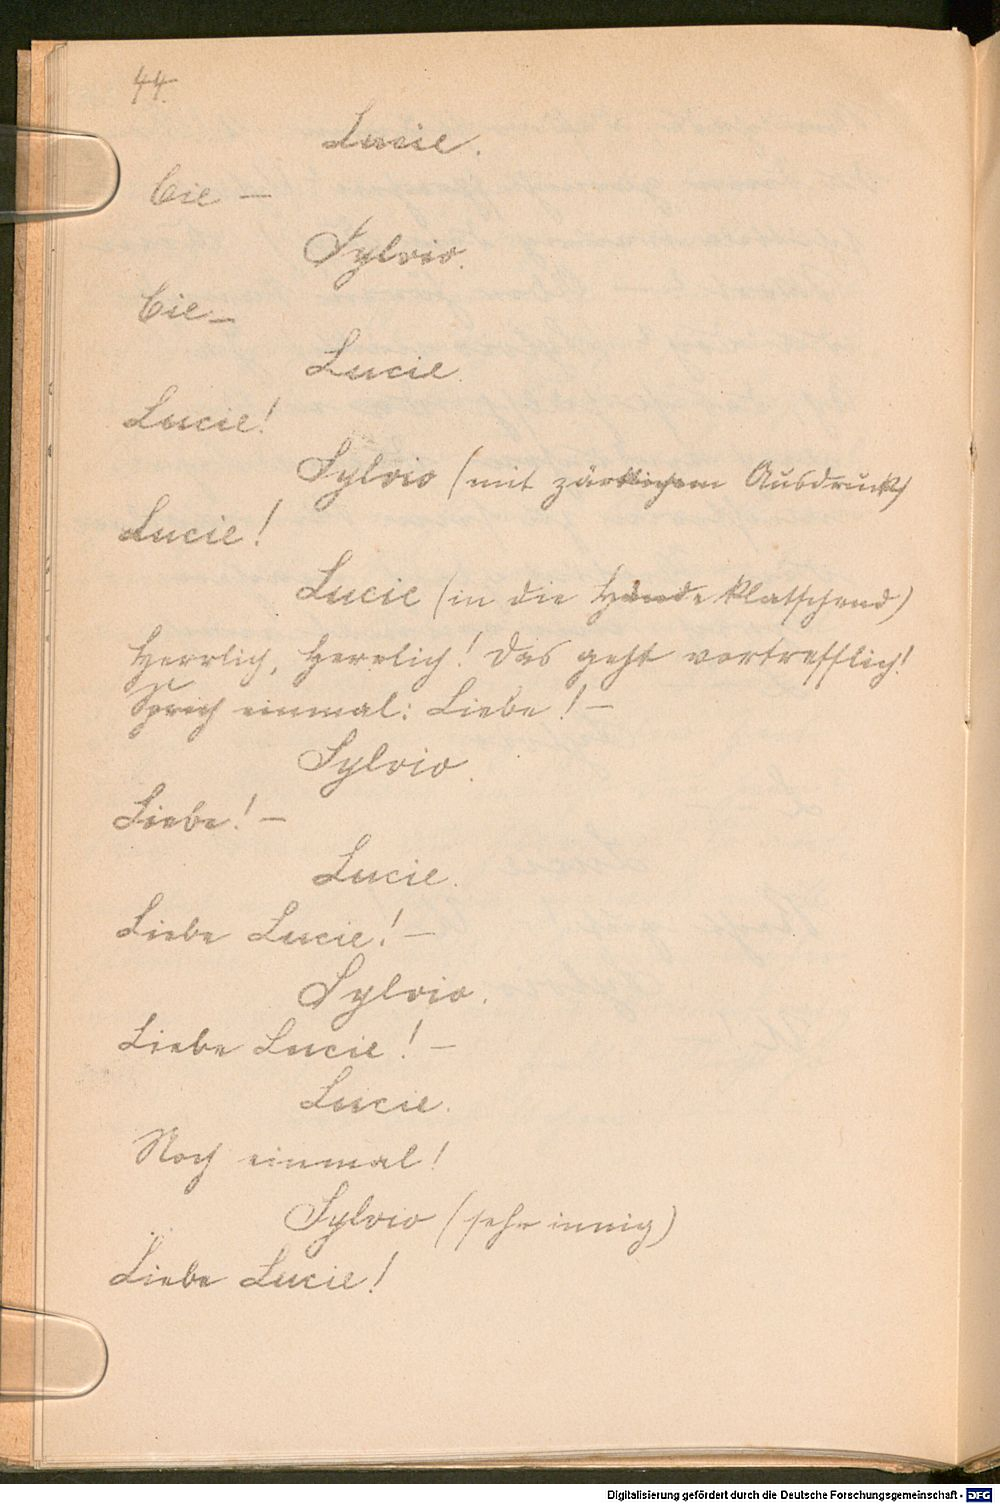 44.
Lucie.
Cie —
Sylvio.
Cie —
Lucie.
Lucie!
Sylvio (mit zärtlichem Ausdruck)
Lucie!
Lucie (in die Hände klatschend)
Herrlich, herrlich! Das geht vortrefflich!
Sprich einmal: Liebe! —
Sylvio.
Liebe! —
Lucie.
Liebe Lucie! —
Sylvio.
Liebe Lucie! —
Lucie.
Noch einmal!
Sylvio (sehr innig)
Liebe Lucie!
Digitalisierung gefördert durch die Deutsche Forschungsgemeinschaft - DFG